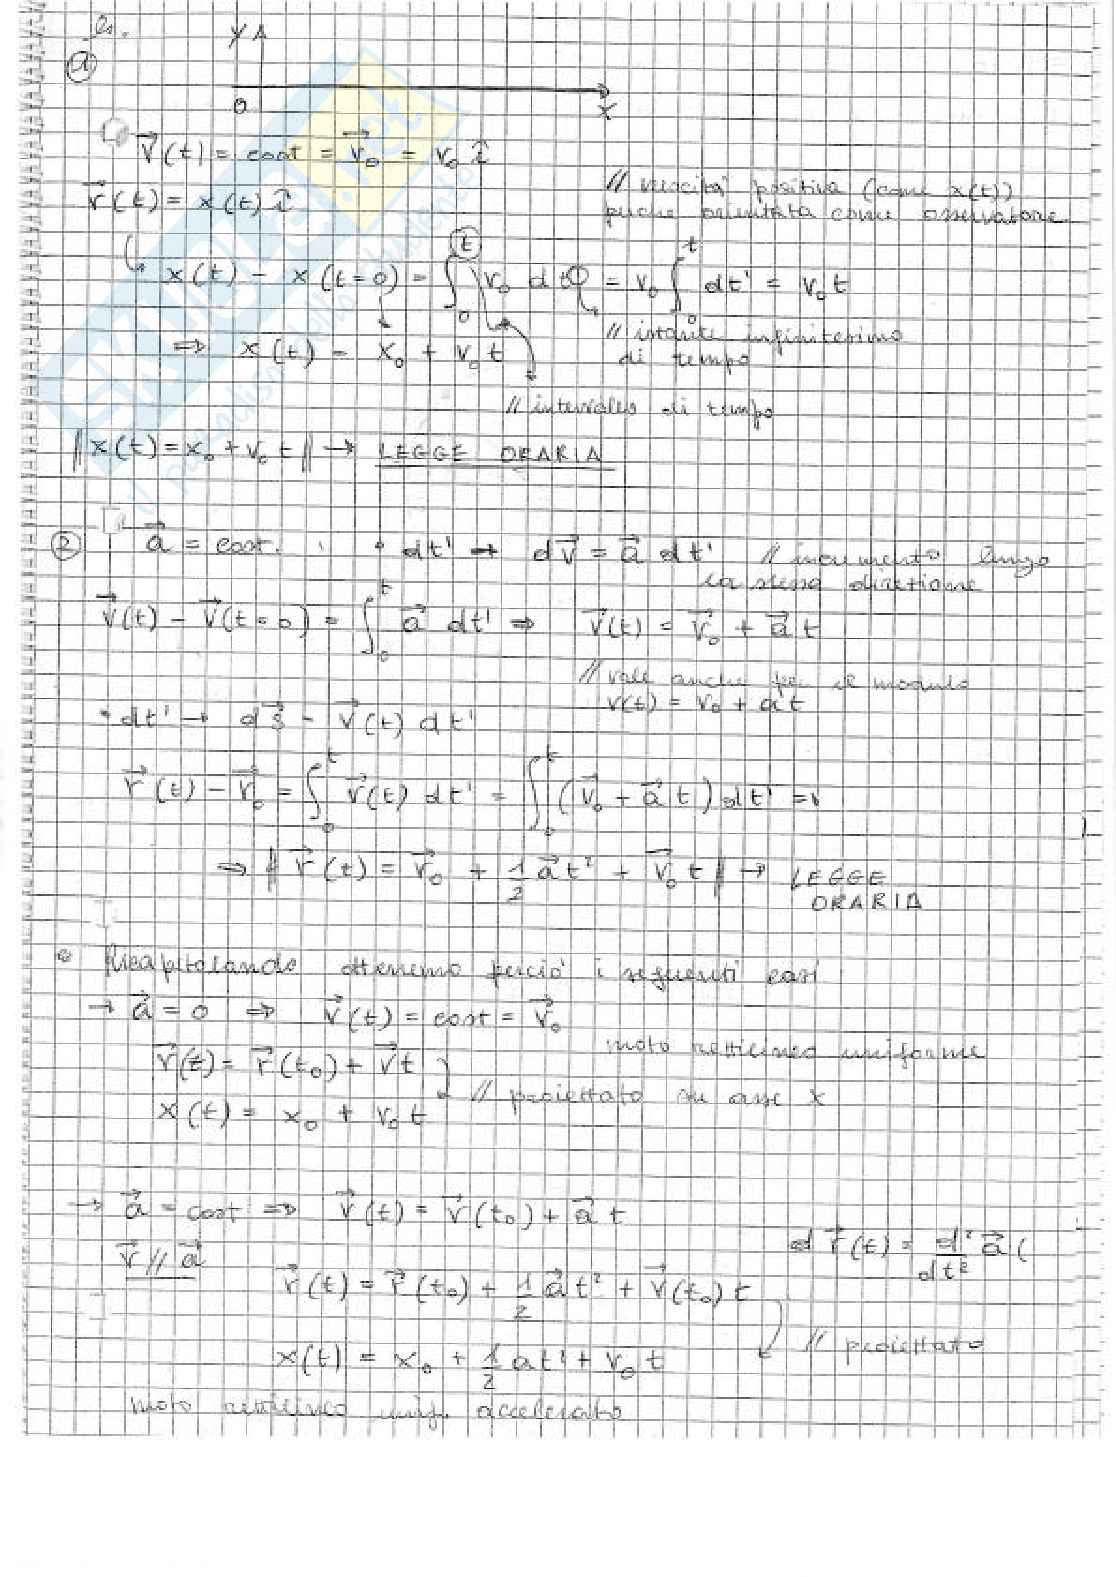 es.
y
①
O x
v⃗(t) = cost = v⃗₀ = v₀ î
r⃗(t) = x(t) î
// velocità positiva (come x(t))
perché orientata come osservatore
x(t) - x(t=0) = ∫₀ᵗ v₀ dt' = v₀ ∫₀ᵗ dt' = v₀t
// istante infinitesimo
di tempo
⇒ x(t) = x₀ + v₀t
// intervallo di tempo
‖x(t) = x₀ + v₀t‖ → LEGGE ORARIA
② a⃗ = cost. • dt' → dv⃗ = a⃗ dt' // incremento lungo
la stessa direzione
v⃗(t) - v⃗(t=0) = ∫₀ᵗ a⃗ dt' ⇒ v⃗(t) = v⃗₀ + a⃗ t
// vale anche per il modulo
v(t) = v₀ + at
• dt' → ds⃗ = v⃗(t) dt'
r⃗(t) - r⃗₀ = ∫₀ᵗ v⃗(t) dt' = ∫₀ᵗ (v⃗₀ + a⃗ t) dt' ⇒
⇒ ‖r⃗(t) = r⃗₀ + 1/2 a⃗t² + v⃗₀t‖ → LEGGE
ORARIA
• Ricapitolando otterremo perciò i seguenti casi
→ a⃗ = 0 ⇒ v⃗(t) = cost = v⃗₀
moto rettilineo uniforme
r⃗(t) = r⃗(t₀) + v⃗t
// proiettato su asse x
x(t) = x₀ + v₀t
→ a⃗ = cost ⇒ v⃗(t) = v⃗(t₀) + a⃗ t
v⃗ // a⃗
d r⃗(t) = d²/dt² a⃗ (
r⃗(t) = r⃗(t₀) + 1/2 a⃗t² + v⃗(t₀) t
// proiettato
x(t) = x₀ + 1/2 at² + v₀ t
moto rettilineo unif. accelerato
skuola.net
il paradiso dello studente